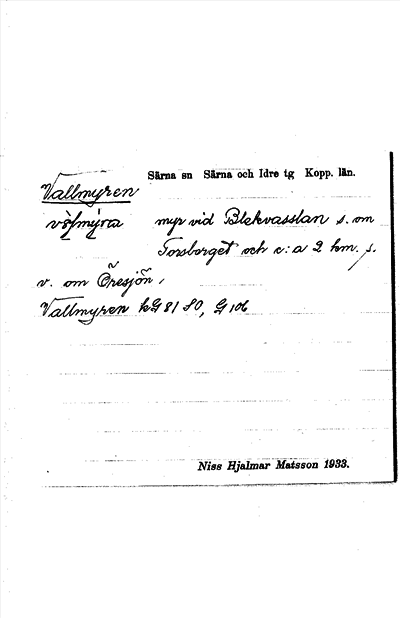 Särna sn Särna och Idre tg Kopp. län.
Vallmyren
myr vid Blekvasslan s. om
Torsberget och c:a 2 km. s.
v. om Öresjön,
Vallmyren kG 81 SO, G 106
Niss Hjalmar Matsson 1933.